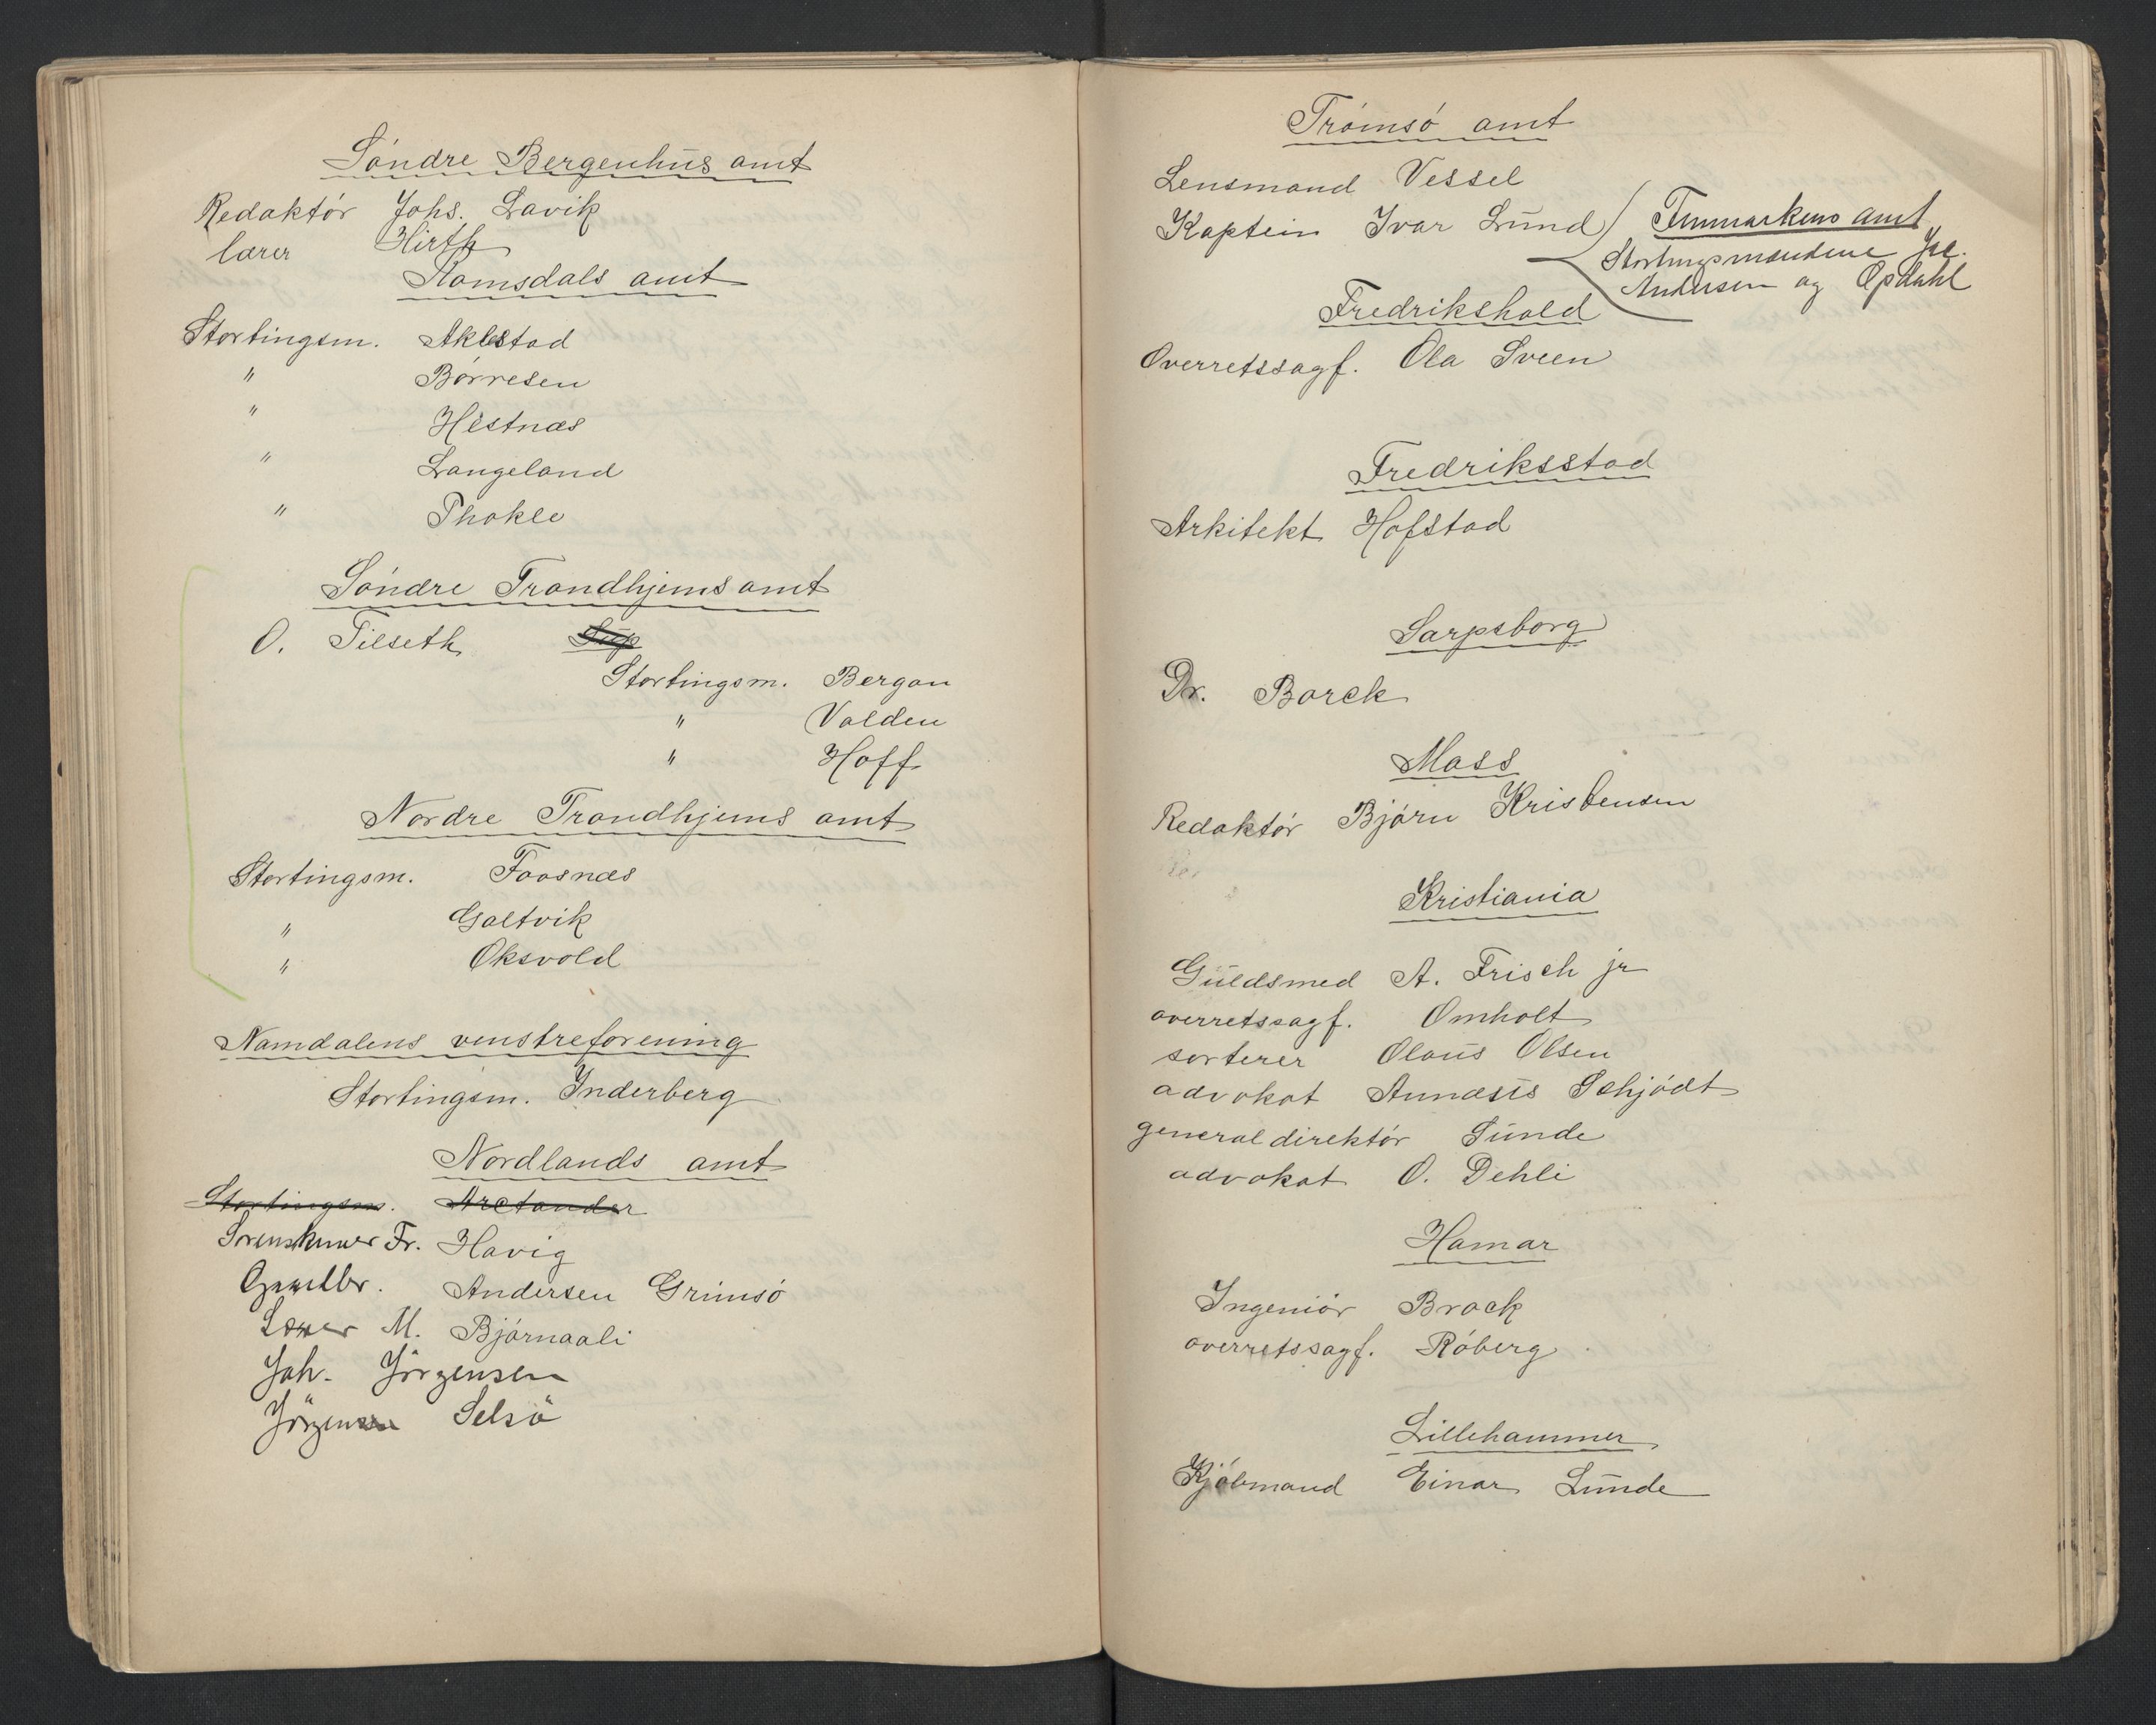 Söndre Bergenhus amt
Redaktör Johs. Lavik
lærer Hirth
Romsdals amt
Stortingsm. Aklestad
" Börresen
" Hestnæs
" Langeland
" Thokle
Söndre Trondhjems amt
O. Tilseth Sup
Stortingsm. Bergan
" Valden
" Hoff
Nordre Trondhjems amt
Stortingsm. Foosnæs
" Galtvik
" Oksvold
Namdalens venstreforening
Stortingsm. Inderberg
Nordlands amt
Stortingsm. Arctander
Sorenskriver Fr. Havig
Andersen Grimsö
Lærer M. Björnaali
Joh. Jörgensen
Jörgensen Selsö
Tromsö amt
Lensmand Vessel
Kaptein Ivar Lund
Finmarkens amt
Stortingsmændene
Andersen og Opdahl
Fredrikshald
Overretssagf. Ola Sveen
Fredriksstad
Arkitekt Hofstad
Sarpsborg
Dr. Borck
Moss
Redaktör Björn Kristensen
Kristiania
Guldsmed A. Frisch jr
overretssagf. Omholt
sorterer Olaus Olsen
advokat Annæus Schjödt
generaldirektör Sunde
advokat O. Dehli
Hamar
Ingeniör Brock
overretssagf. Röberg
Lillehammer
Kjöbmand Einar Lunde